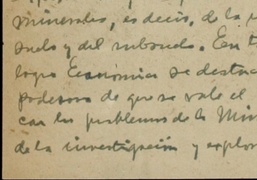 minerales, es decir, de la
suelo y del subsuelo. En
logía Económica se destaca
poderosa de que se vale el
car los problemas de la Min
de la investigación y explor